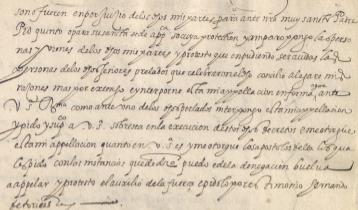 sono fuesen en perjuisio delos dhos mis partes para ante nro muy santo Padre
Pio quinto o para su santa sede appca so cuya protection y amparo pongo las perso
nas y vienes delos dhos mis partes y protesto que en pudiendo ser auidas las
personas delos dhos señores prelados que celebraron el dho concilio alegare mis
razones mas por extenso e ynterporne esta mi appellacion en forma ante
V. S. como ante uno delos dhos prelados interpongo esta mi appellacion
y pido y supco a V. S. sobresea en la execucion destos dhos decretos e me otorgue
esta mi appellacion quanto en V. S. es y me otorgue los apostolos della los quales
les pido con las instancias que de drecho puedo e dela denegacion buelvo
a appelar y protesto el auxilio dela fuerça e pidolo por testimonio Fernando